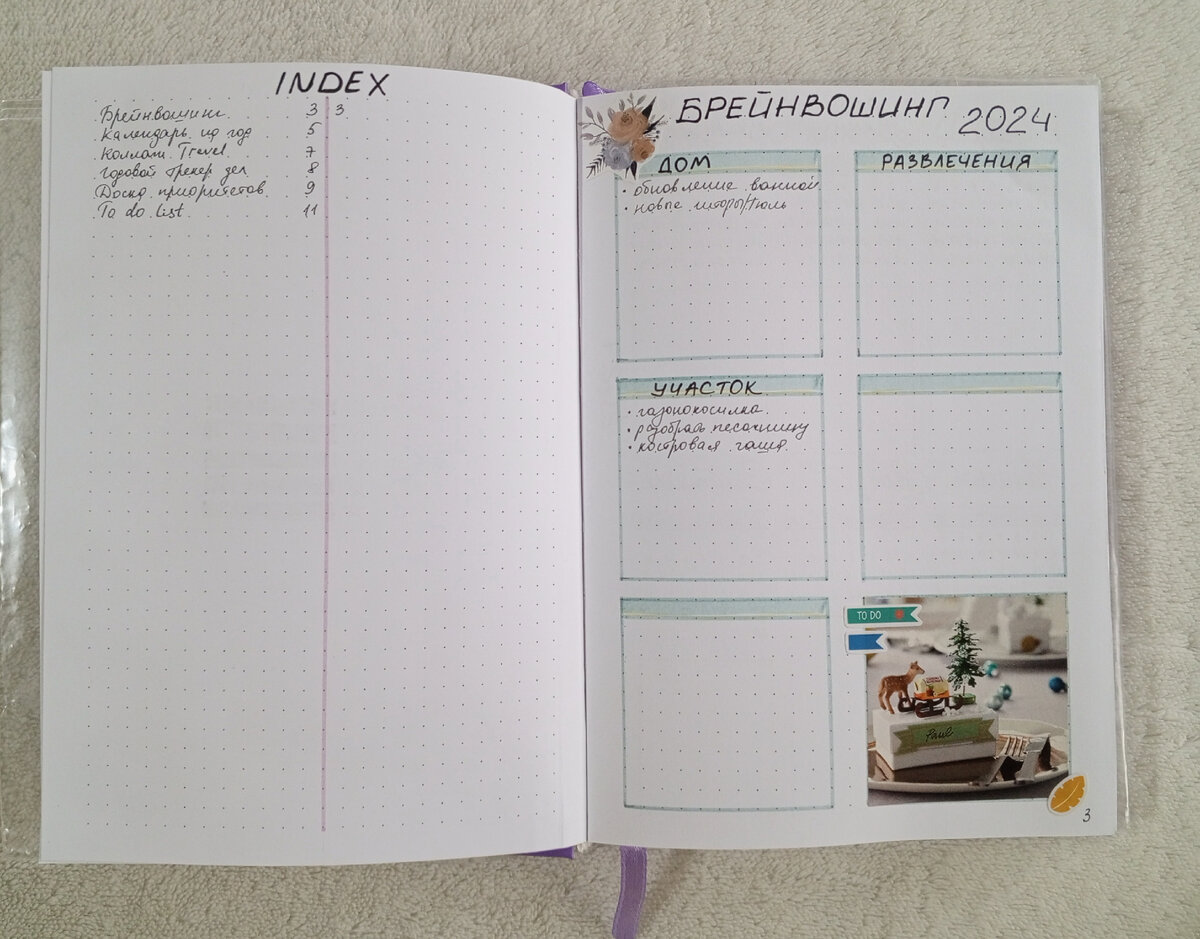 INDEX
Брейнвошинг 3 3
Календарь на год 5
Коллаж Travel 7
годовой трекер дел 8
Доска приоритетов 9
To do list 11
БРЕЙНВОШИНГ 2024
ДОМ
• обновление ванной
• новые шторы/тюль
РАЗВЛЕЧЕНИЯ
УЧАСТОК
• газонокосилка
• разобрать песочницу
• костровая чаша
TO DO
Paul
3